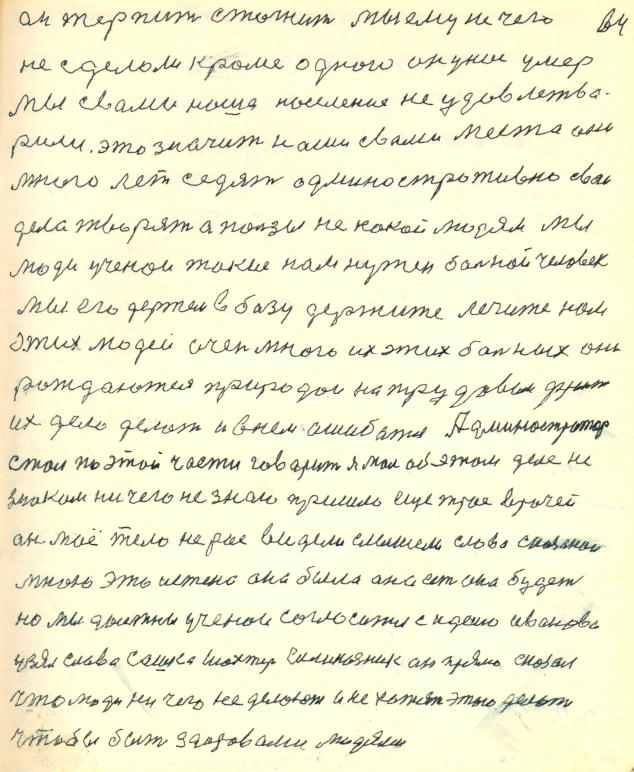 он терпит стогнит мы ему не чего 64
не сделоли кроме одного он унис умер
мы свами наша носеление не удовлетва-
рили. это значит наши свами места они
много лет седят одминостротивно сваи
дела творят а ползы не какой людям мы
люди ученои такие нам нужен балной человек
мы его держем в базу держите лечите нам
этих людей очен много их этих балных они
рождаются природои на трудовом
их дело делат и в нем ошибатя Администратор
стол по этой части говарит я мол об этом деле не
знаком ни чего не знаю пришло еще трое врочей
он моё тело не рас видели слышели слова сказаной
мною это истена она была она ест она будет
но мы должны ученои согласится с идею иванова
узял слова сашка шохтер силикозник он прямо сказал
что люди ни чего не делоют и не хатят этого делат
чтобы быт здоровами людями